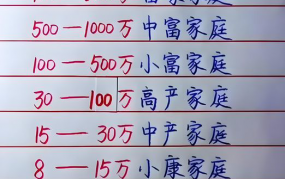 500—1000万中富家庭
100—500万小富家庭
30—100万高产家庭
15—30万中产家庭
8—15万小康家庭